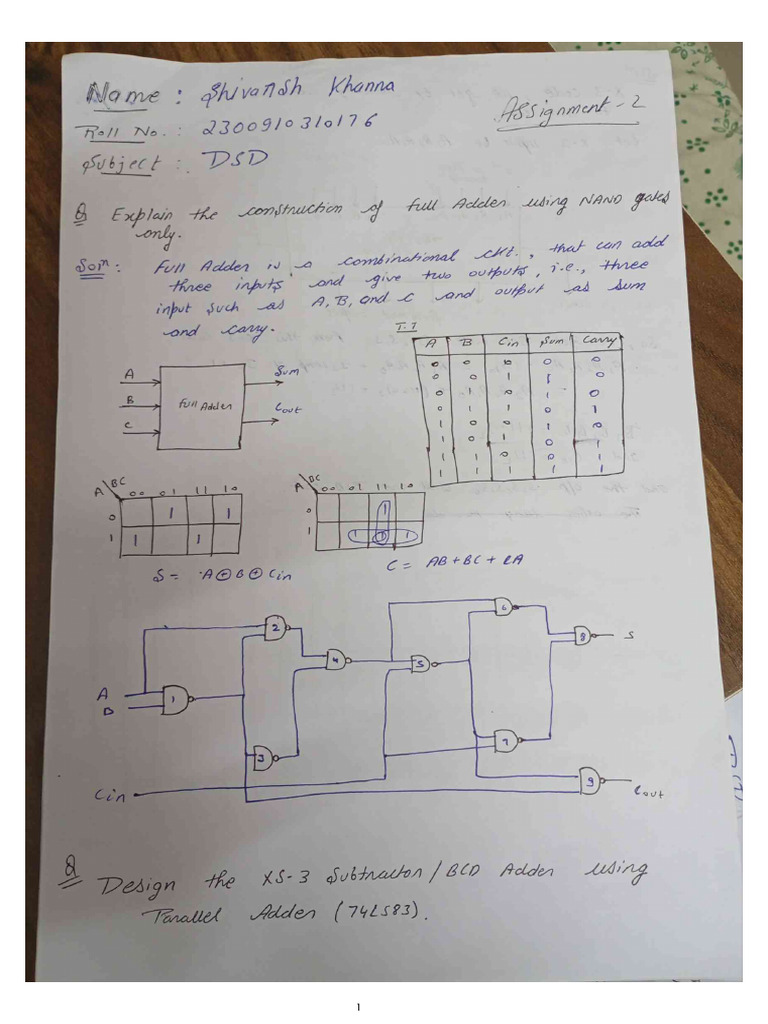 Name : Shivansh Khanna
Assignment - 2
Roll No. : 2300910310176
Subject : DSD
Q Explain the construction of full Adder using NAND gates
only.
Soln : Full Adder is a combinational ckt., that can add
three inputs and give two outputs, i.e., three
input such as A, B, and C and output as sum
and carry.
T.T
A B Cin Sum Carry
0 0 0 0 0
0 0 1 1 0
0 1 0 1 0
0 1 1 0 1
1 0 0 1 0
1 0 1 0 1
1 1 0 0 1
1 1 1 1 1
A
B
C
Full Adder
Sum
Cout
A BC 00 01 11 10
0 1 1
1 1 1
S = A ⊕ B ⊕ Cin
A BC 00 01 11 10
0 1
1 1 1 1
C = AB + BC + CA
A
B
Cin
1
2
3
4
5
6
7
8
9
S
Cout
Q Design the XS-3 Subtractor / BCD Adder using
Parallel Adder (74LS83).
1